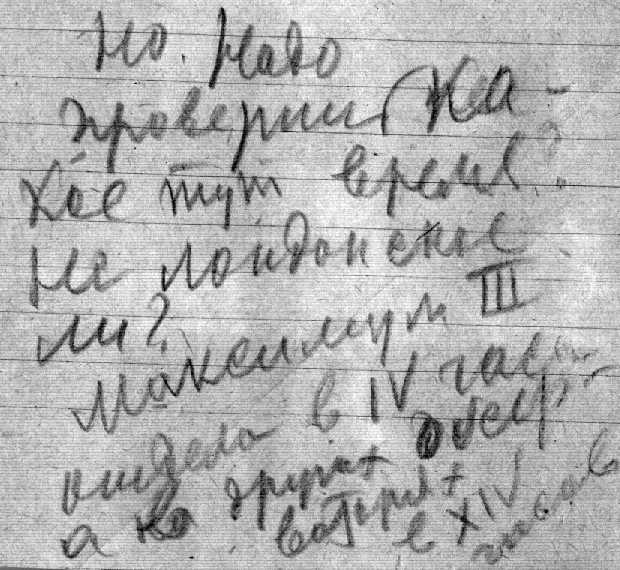 Но. Надо
проверить ка-
кое тут время?
Не лондонское
ли?
Максимум III
отдела в IV часа
а на других обсер-
ваториях в XIV
часов